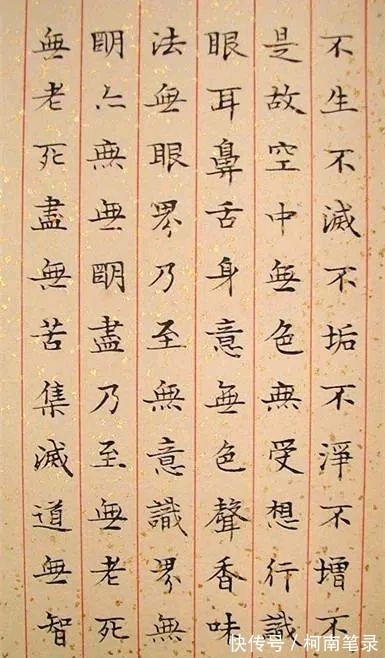 不生不滅不垢不淨不增不
是故空中無色無受想行識
眼耳鼻舌身意無色聲香味
法無眼界乃至無意識界無
明亦無無明盡乃至無老死
無老死盡無苦集滅道無智
快传号/柯南笔录